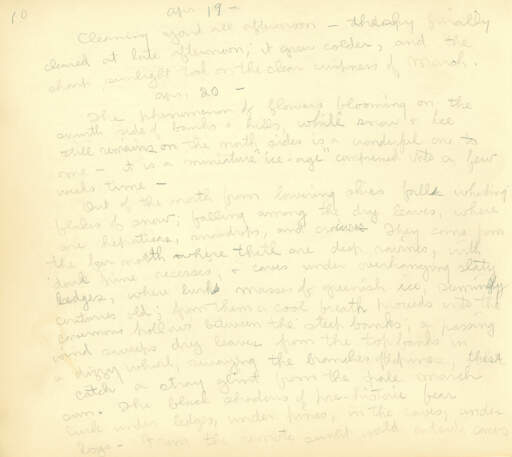 10
Apr. 19 -
Cleaning yard all afternoon - the sky finally
cleared at late afternoon; it grew colder, and the
sharp sunlight took on the clear crispness of March.
Apr. 20 -
The phenomenon of flowers blooming on the
south side of banks & hills, while snow & ice
still remains on the north sides is a wonderful one to
me - it is a miniature "ice-age" compressed into a few
weeks time -
Out of the north from lowering skies falls whirling
flakes of snow; falling among the dry leaves, where
are hepaticas, snowdrops, and crocuses They come from
the far north where there are deep ravines, with
dark pine recesses, & caves under overhanging slaty
ledges, where lurks masses of greenish ice, seemingly
centuries old; from them a cool breath proceeds into the
cavernous hollows between the steep banks; a passing
wind sweeps dry leaves from the top banks in
a dizzy whirl, swaying the branches of pines, that
catch a stray glint from the pale march
sun. The black shadows of pre-historic fear
lurk under ledges, under pines, in the caves, under
logs - From the remote sunlit world outside comes